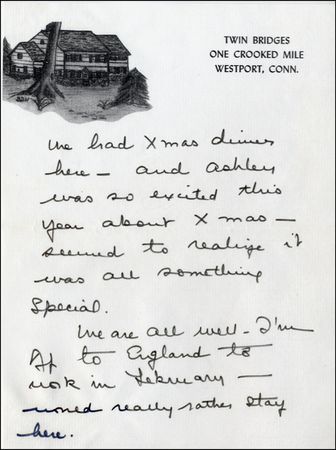 TWIN BRIDGES
ONE CROOKED MILE
WESTPORT, CONN.
We had Xmas dinner
here – and Ashley
was so excited this
year about Xmas –
seemed to realize it
was all something
special.
We are all well – I'm
to England to
work in February –
would really rather stay
here.